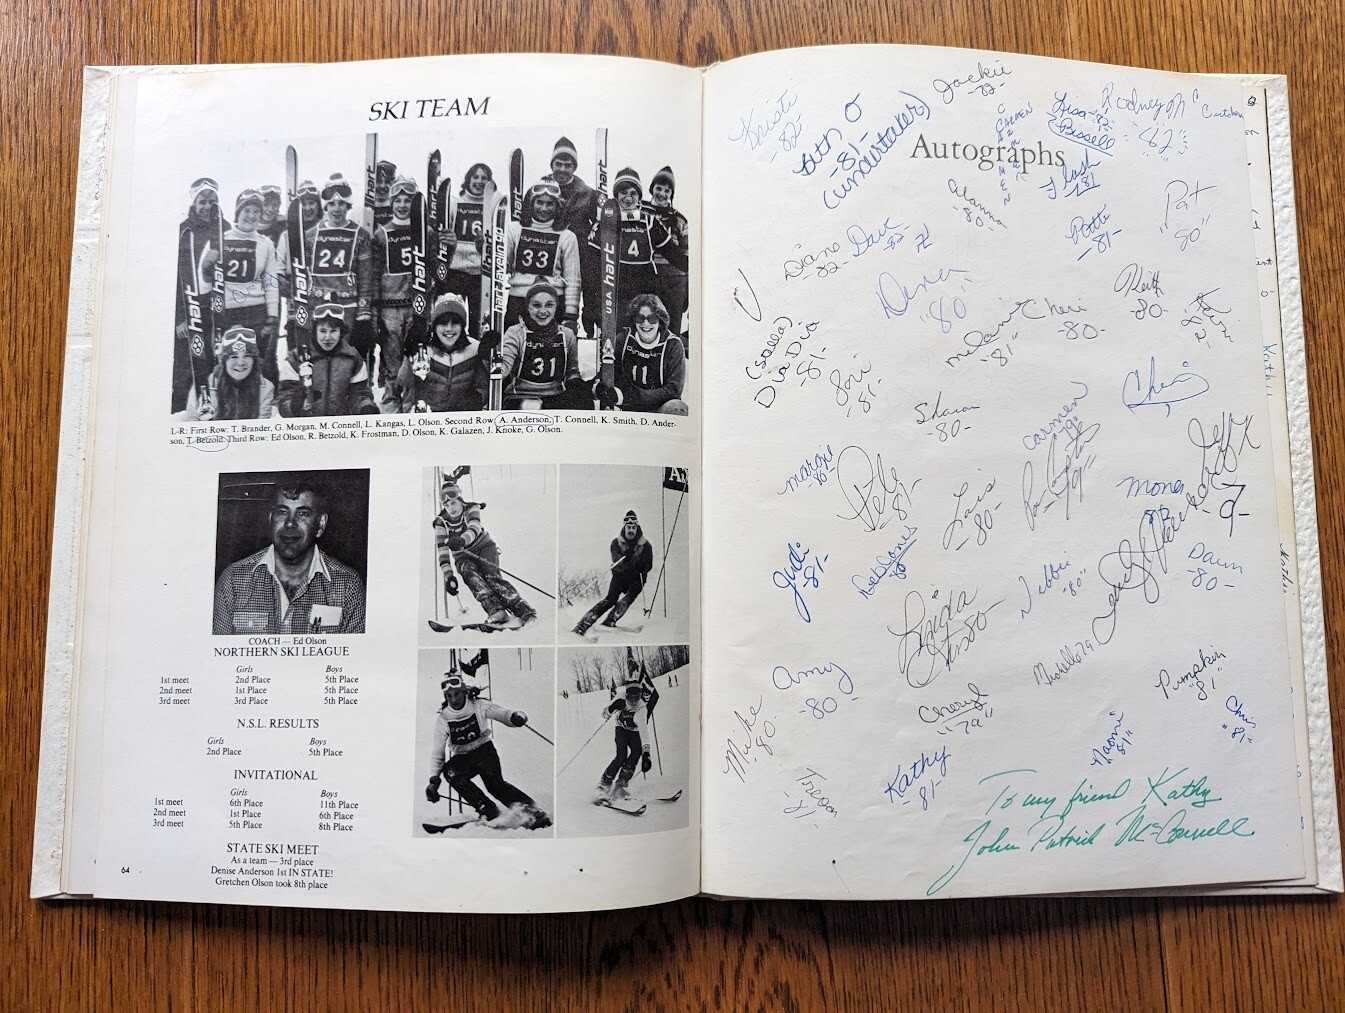 SKI TEAM
hart
dynastar
21
24
5
16
33
4
31
11
USA
L-R: First Row: T. Brander, G. Morgan, M. Connell, L. Kangas, L. Olson. Second Row: A. Anderson, T. Connell, K. Smith, D. Ander-
son, T. Betzold. Third Row: Ed Olson, R. Betzold, K. Frostman, D. Olson, K. Galazen, J. Knoke, G. Olson.
COACH — Ed Olson
NORTHERN SKI LEAGUE
Girls Boys
1st meet 2nd Place 5th Place
2nd meet 1st Place 5th Place
3rd meet 3rd Place 5th Place
N.S.L. RESULTS
Girls Boys
2nd Place 5th Place
INVITATIONAL
Girls Boys
1st meet 6th Place 11th Place
2nd meet 1st Place 6th Place
3rd meet 5th Place 8th Place
STATE SKI MEET
As a team — 3rd place
Denise Anderson 1st IN STATE!
Gretchen Olson took 8th place
64
Autographs
Jackie
-82-
Kristi
-82-
Beth O
-81-
(undertaker)
Lisa-82-
Bissell
Rodney Mc
"82"
Flash
-81-
Alanna
"80"
Patti
-81-
Pat
"80"
Diane
-82-
Dave
-82-
Dena
"80"
Melanie
"81"
Cheri
-80-
Keith
-80-
Dia Dia
-81-
Jori
-81-
Sharon
-80-
Carmen
79
Cheri
Jeff K
-79-
Margie
80
Pete
-81-
Lois
-80-
Mona
Judi
-81-
Deb Jones
80
Linda
-80-
Debbie
"80"
Dawn
-80-
Amy
-80-
Mike
80
Cheryl
"79"
Michelle 79
Pumpkin
"81"
Chris
"81"
Naomi
"81"
Kathy
-81-
To my friend Kathy
John Patrick McConnell